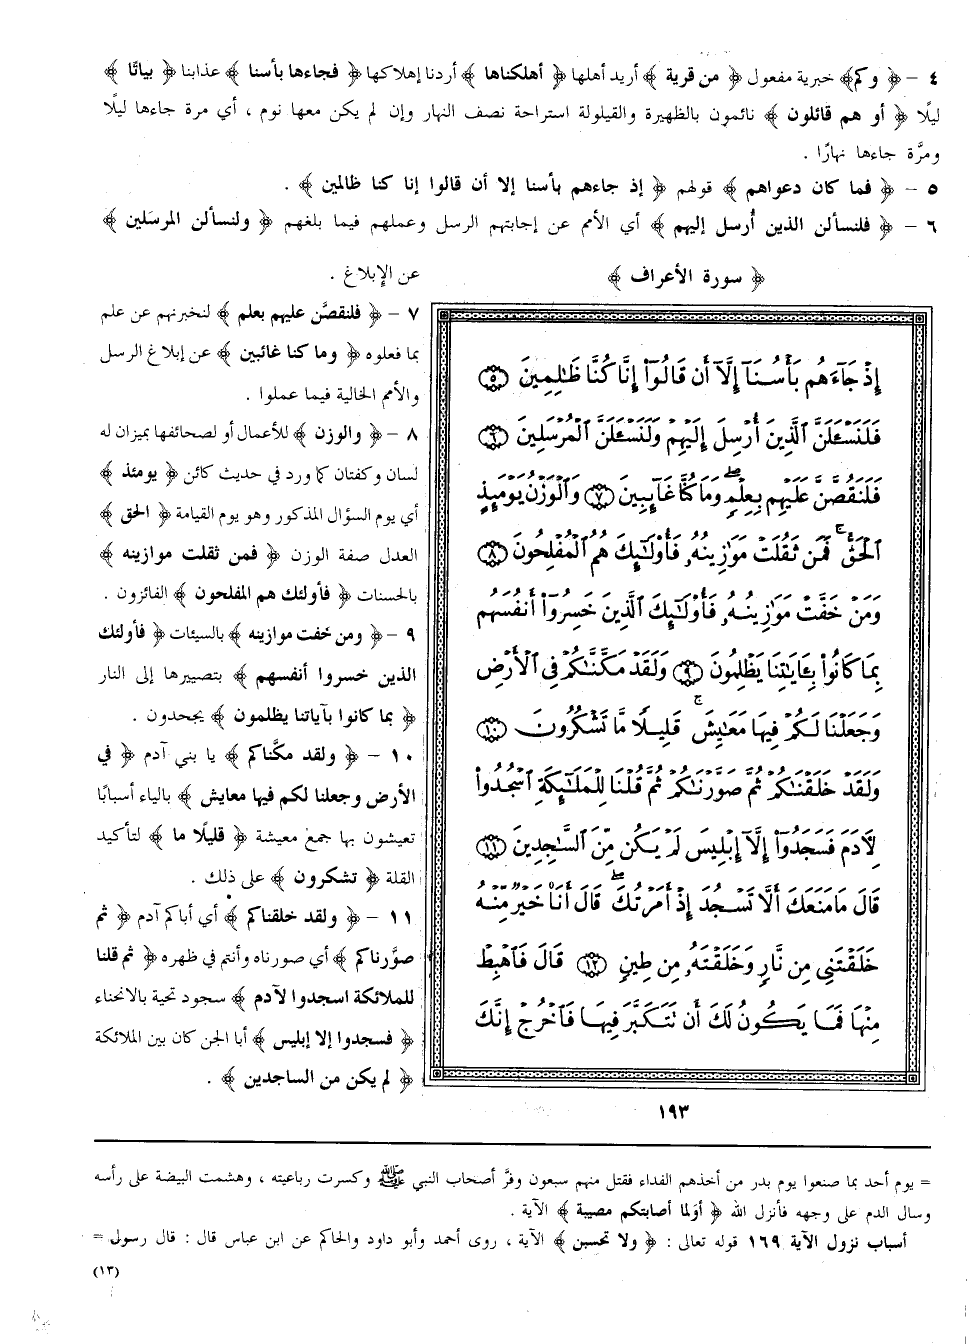 ٤ - ﴿ وكم ﴾ خبرية مفعول ﴿ من قرية ﴾ أريد أهلها ﴿ أهلكناها ﴾ أردنا إهلاكها ﴿ فجاءها بأسنا ﴾ عذابنا ﴿ بياتًا ﴾
ليلًا ﴿ أو هم قائلون ﴾ نائمون بالظهيرة والقيلولة استراحة نصف النهار وإن لم يكن معها نوم ، أي مرة جاءها ليلًا
ومرَّة جاءها نهارًا .
٥ - ﴿ فما كان دعواهم ﴾ قولهم ﴿ إذ جاءهم بأسنا إلا أن قالوا إنا كنا ظالمين ﴾ .
٦ - ﴿ فلنسألن الذين أُرسل إليهم ﴾ أي الأمم عن إجابتهم الرسل وعملهم فيما بلغهم ﴿ ولنسألن المرسَلين ﴾
عن الإبلاغ .
٧ - ﴿ فلنقصَّن عليهم بعلم ﴾ لنخبرنهم عن علم
بما فعلوه ﴿ وما كنا غائبين ﴾ عن إبلاغ الرسل
والأمم الخالية فيما عملوا .
٨ - ﴿ والوزن ﴾ للأعمال أو لصحائفها بميزان له
لسان وكفتان كما ورد في حديث كائن ﴿ يومئذ ﴾
أي يوم السؤال المذكور وهو يوم القيامة ﴿ الحق ﴾
العدل صفة الوزن ﴿ فمن ثقلت موازينه ﴾
بالحسنات ﴿ فأولئك هم المفلحون ﴾ الفائزون .
٩ - ﴿ ومن خفت موازينه ﴾ بالسيئات ﴿ فأولئك
الذين خسروا أنفسهم ﴾ بتصييرها إلى النار
﴿ بما كانوا بآياتنا يظلمون ﴾ يجحدون .
١٠ - ﴿ ولقد مكَّناكم ﴾ يا بني آدم ﴿ في
الأرض وجعلنا لكم فيها معايش ﴾ بالياء أسبابًا
تعيشون بها جمع معيشة ﴿ قليلًا ما ﴾ لتأكيد
القلة ﴿ تشكرون ﴾ على ذلك .
١١ - ﴿ ولقد خلقناكم ﴾ أي أباكم آدم ﴿ ثم
صوَّرناكم ﴾ أي صورناه وأنتم في ظهره ﴿ ثم قلنا
للملائكة اسجدوا لآدم ﴾ سجود تحية بالانحناء
﴿ فسجدوا إلا إبليس ﴾ أبا الجن كان بين الملائكة
﴿ لم يكن من الساجدين ﴾ .
﴿ سورة الأعراف ﴾
إِذْ جَآءَهُم بَأْسُنَآ إِلَّآ أَن قَالُوٓا۟ إِنَّا كُنَّا ظَٰلِمِينَ ٥
فَلَنَسْـَٔلَنَّ ٱلَّذِينَ أُرْسِلَ إِلَيْهِمْ وَلَنَسْـَٔلَنَّ ٱلْمُرْسَلِينَ ٦
فَلَنَقُصَّنَّ عَلَيْهِم بِعِلْمٍ ۖ وَمَا كُنَّا غَآئِبِينَ ٧ وَٱلْوَزْنُ يَوْمَئِذٍ
ٱلْحَقُّ ۚ فَمَن ثَقُلَتْ مَوَٰزِينُهُۥ فَأُو۟لَٰٓئِكَ هُمُ ٱلْمُفْلِحُونَ ٨
وَمَنْ خَفَّتْ مَوَٰزِينُهُۥ فَأُو۟لَٰٓئِكَ ٱلَّذِينَ خَسِرُوٓا۟ أَنفُسَهُم
بِمَا كَانُوا۟ بِـَٔايَٰتِنَا يَظْلِمُونَ ٩ وَلَقَدْ مَكَّنَّٰكُمْ فِى ٱلْأَرْضِ
وَجَعَلْنَا لَكُمْ فِيهَا مَعَٰيِشَ ۗ قَلِيلًا مَّا تَشْكُرُونَ ١٠
وَلَقَدْ خَلَقْنَٰكُمْ ثُمَّ صَوَّرْنَٰكُمْ ثُمَّ قُلْنَا لِلْمَلَٰٓئِكَةِ ٱسْجُدُوا۟
لِـَٔادَمَ فَسَجَدُوٓا۟ إِلَّآ إِبْلِيسَ لَمْ يَكُن مِّنَ ٱلسَّٰجِدِينَ ١١
قَالَ مَا مَنَعَكَ أَلَّا تَسْجُدَ إِذْ أَمَرْتُكَ ۖ قَالَ أَنَا۠ خَيْرٌ مِّنْهُ
خَلَقْتَنِى مِن نَّارٍ وَخَلَقْتَهُۥ مِن طِينٍ ١٢ قَالَ فَٱهْبِطْ
مِنْهَا فَمَا يَكُونُ لَكَ أَن تَتَكَبَّرَ فِيهَا فَٱخْرُجْ إِنَّكَ
١٩٣
= يوم أحد بما صنعوا يوم بدر من أخذهم الفداء فقتل منهم سبعون وفرَّ أصحاب النبي ﷺ وكسرت رباعيته ، وهشمت البيضة على رأسه
وسال الدم على وجهه فأنزل الله ﴿ أوَلما أصابتكم مصيبة ﴾ الآية .
أسباب نزول الآية ١٦٩ قوله تعالى : ﴿ ولا تحسبن ﴾ الآية ، روى أحمد وأبو داود والحاكم عن ابن عباس قال : قال رسول =
(١٣)